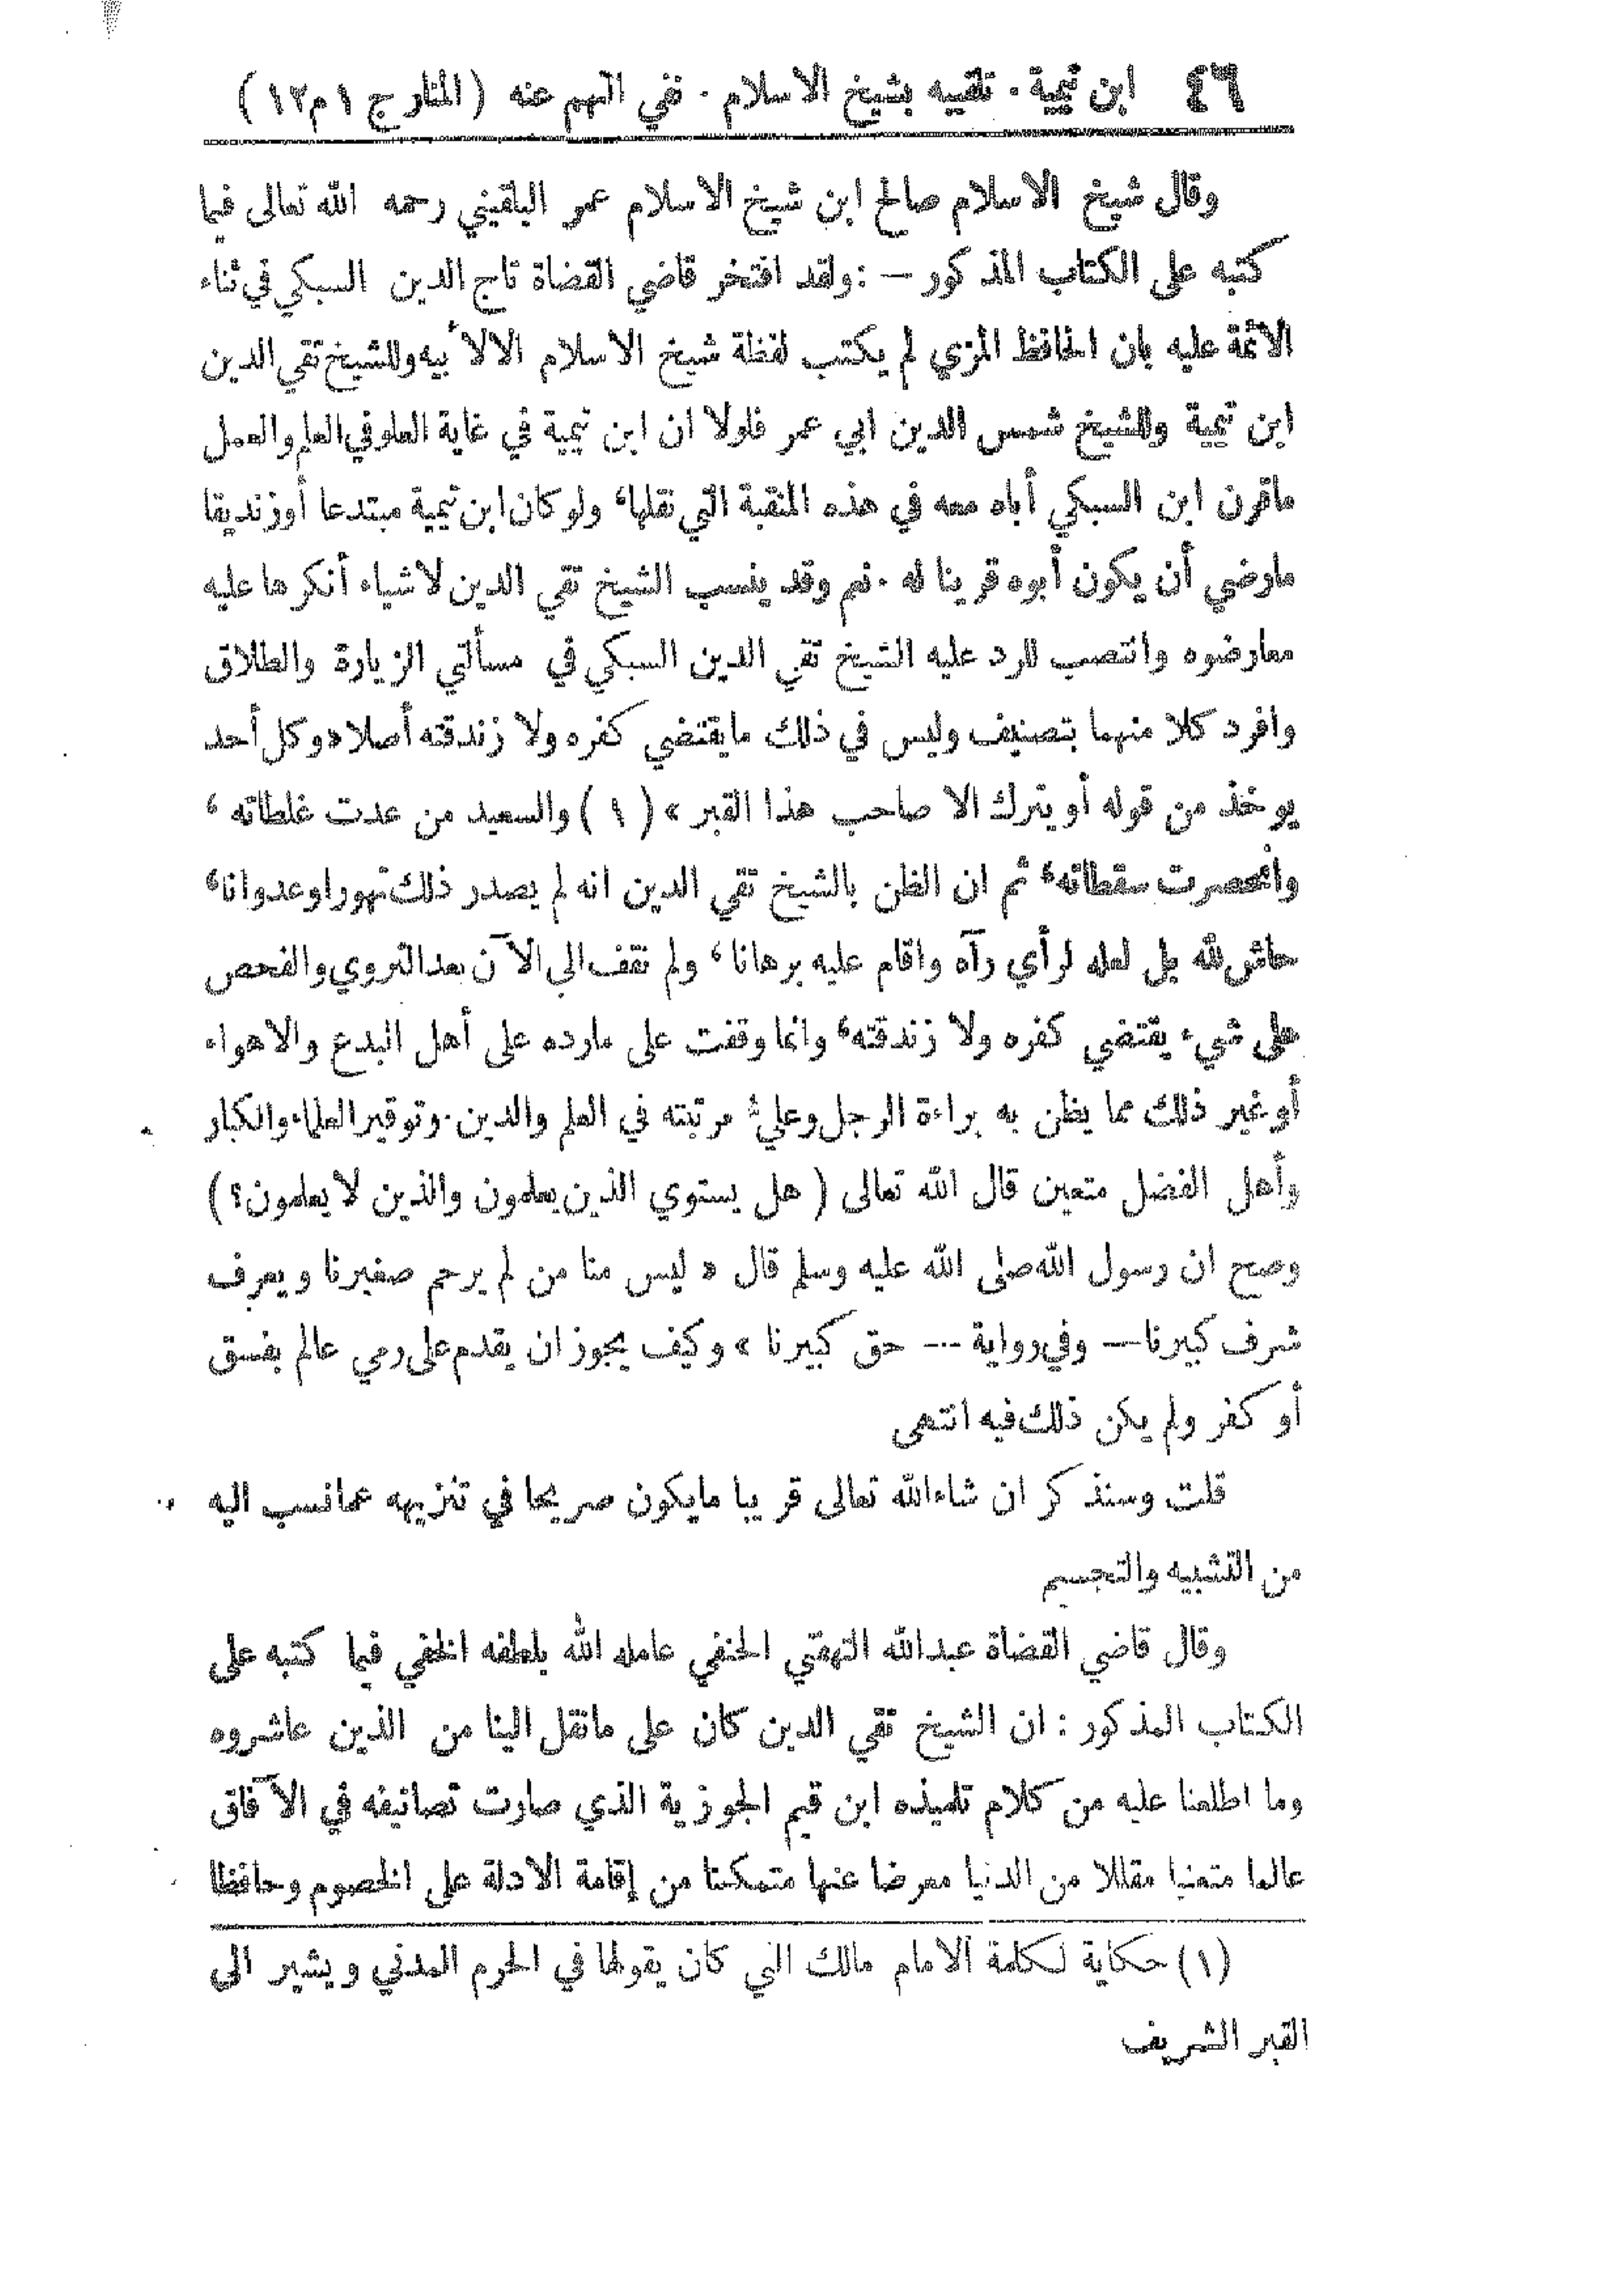 ٤٦ ابن تيمية . تلقيبه بشيخ الاسلام . نفي التهم عنه (المنار ج ١ م ١٣)
وقال شيخ الاسلام صالح ابن شيخ الاسلام عمر البلقيني رحمه الله تعالى فيما
كتبه على الكتاب المذكور — : ولقد افتخر قاضي القضاة تاج الدين السبكي في ثناء
الائمة عليه بان الحافظ المزي لم يكتب لفظة شيخ الاسلام الا لأبيه وللشيخ تقي الدين
ابن تيمية وللشيخ شمس الدين ابي عمر فلولا ان ابن تيمية في غاية العلو في العلم والعمل
ماقرن ابن السبكي أباه معه في هذه المنقبة التي نقلها، ولو كان ابن تيمية مبتدعا أو زنديقا
مارضي أن يكون أبوه قرينا له . نعم وقد ينسب الشيخ تقي الدين لاشياء أنكرها عليه
معارضوه وانتصب للرد عليه الشيخ تقي الدين السبكي في مسألتي الزيارة والطلاق
وافرد كلا منهما بتصنيف وليس في ذلك مايقتضي كفره ولا زندقته أصلا «وكل أحد
يوخذ من قوله أو يترك الا صاحب هذا القبر» (١) والسعيد من عدت غلطاته ،
وانحصرت سقطاته، ثم ان الظن بالشيخ تقي الدين انه لم يصدر ذلك تهورا وعدوانا،
حاش لله بل لعله لرأي رآه واقام عليه برهانا، ولم نقف الى الآن بعد التروي والفحص
على شيء يقتضي كفره ولا زندقته، وانما وقفت على مارده على أهل البدع والاهواء
أو غير ذلك مما يظن به براءة الرجل وعليّ مرتبته في العلم والدين . وتوقير العلماء والكبار
وأهل الفضل متعين قال الله تعالى ( هل يستوي الذين يعلمون والذين لا يعلمون؟ )
وصح ان رسول الله صلى الله عليه وسلم قال « ليس منا من لم يرحم صغيرنا ويعرف
شرف كبيرنا — وفي رواية — حق كبيرنا » وكيف يجوز ان يقدم على رمي عالم بفسق
أو كفر ولم يكن ذلك فيه انتهى
قلت وسنذكر ان شاء الله تعالى قريبا مايكون صريحا في تنزيهه عما نسب اليه
من التشبيه والتجسيم
وقال قاضي القضاة عبد الله التهفتي الحنفي عامله الله بلطفه الخفي فيما كتبه على
الكتاب المذكور : ان الشيخ تقي الدين كان على مانقل الينا من الذين عاشروه
وما اطلعنا عليه من كلام تلميذه ابن قيم الجوزية الذي صارت تصانيفه في الآفاق
عالما متفننا مقللا من الدنيا معرضا عنها متمكنا من إقامة الادلة على الخصوم وحافظا
(١) حكاية لكلمة الامام مالك التي كان يقولها في الحرم المدني ويشير الى
القبر الشريف